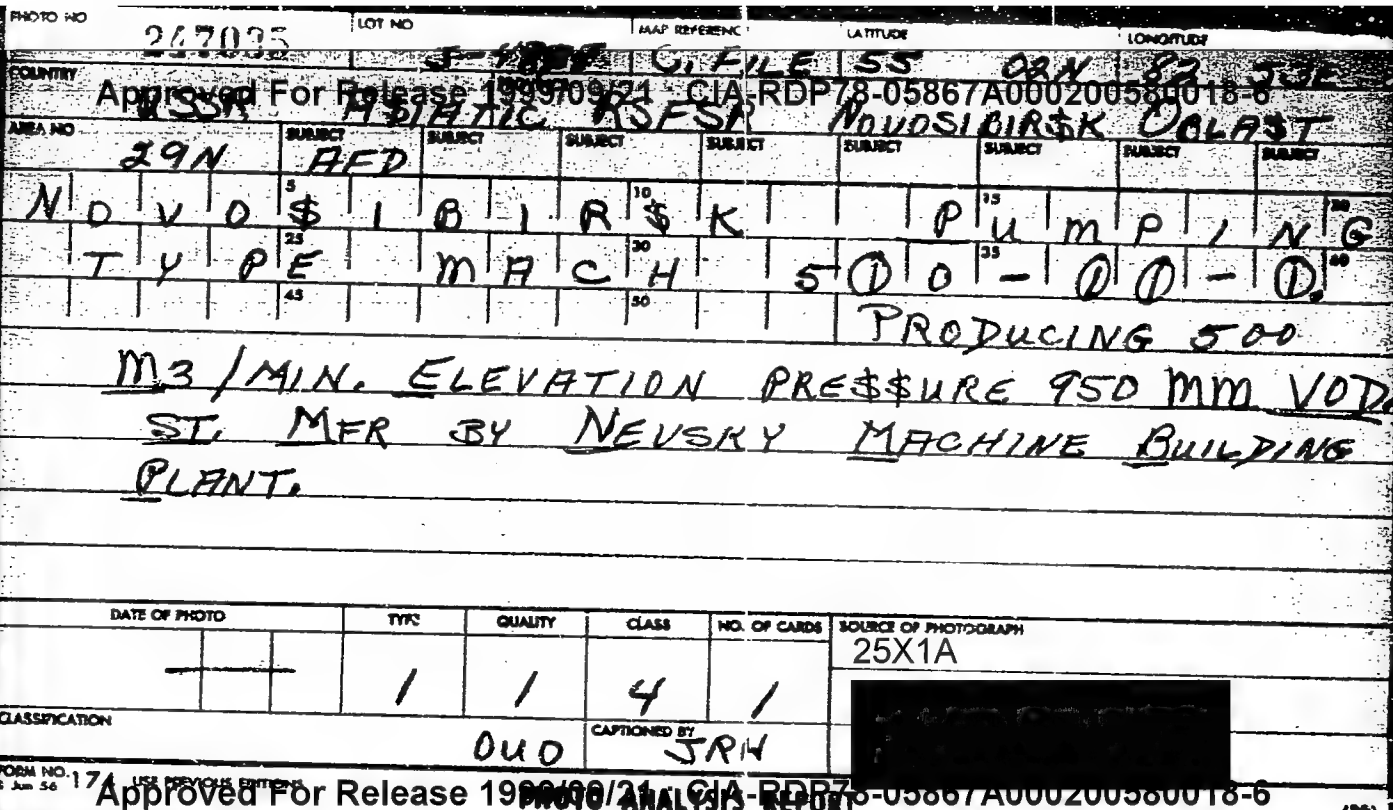 PHOTO NO LOT NO MAP REFERENC LATITUDE LONGITUDE
247035 C. FILE 55 02N 82 53E
COUNTRY
Approved For Release 1999/09/21 : CIA-RDP78-05867A000200580018-6
USSR ASIATIC RSFSR NOVOSIBIR$K OBLA$T
AREA NO SUBJECT SUBJECT SUBJECT SUBJECT SUBJECT SUBJECT SUBJECT SUBJECT
29N AFD
5 10 15 20
NOVO$IBIR$K PUMPING
25 30 35 40
TYPE MACH 500-00-0.
45 50
PRODUCING 500
M3/MIN. ELEVATION PRE$$URE 950 MM VOD.
ST. MFR BY NEVSKY MACHINE BUILDING
PLANT.
DATE OF PHOTO TYPE QUALITY CLASS NO. OF CARDS SOURCE OF PHOTOGRAPH
25X1A
— 1 1 4 1
CLASSIFICATION CAPTIONED BY
OUO JRW
FORM NO. 174 USE PREVIOUS EDITIONS
Jun 56
Approved For Release 1999/09/21 : CIA-RDP78-05867A000200580018-6
PHOTO ANALYSIS REPORT